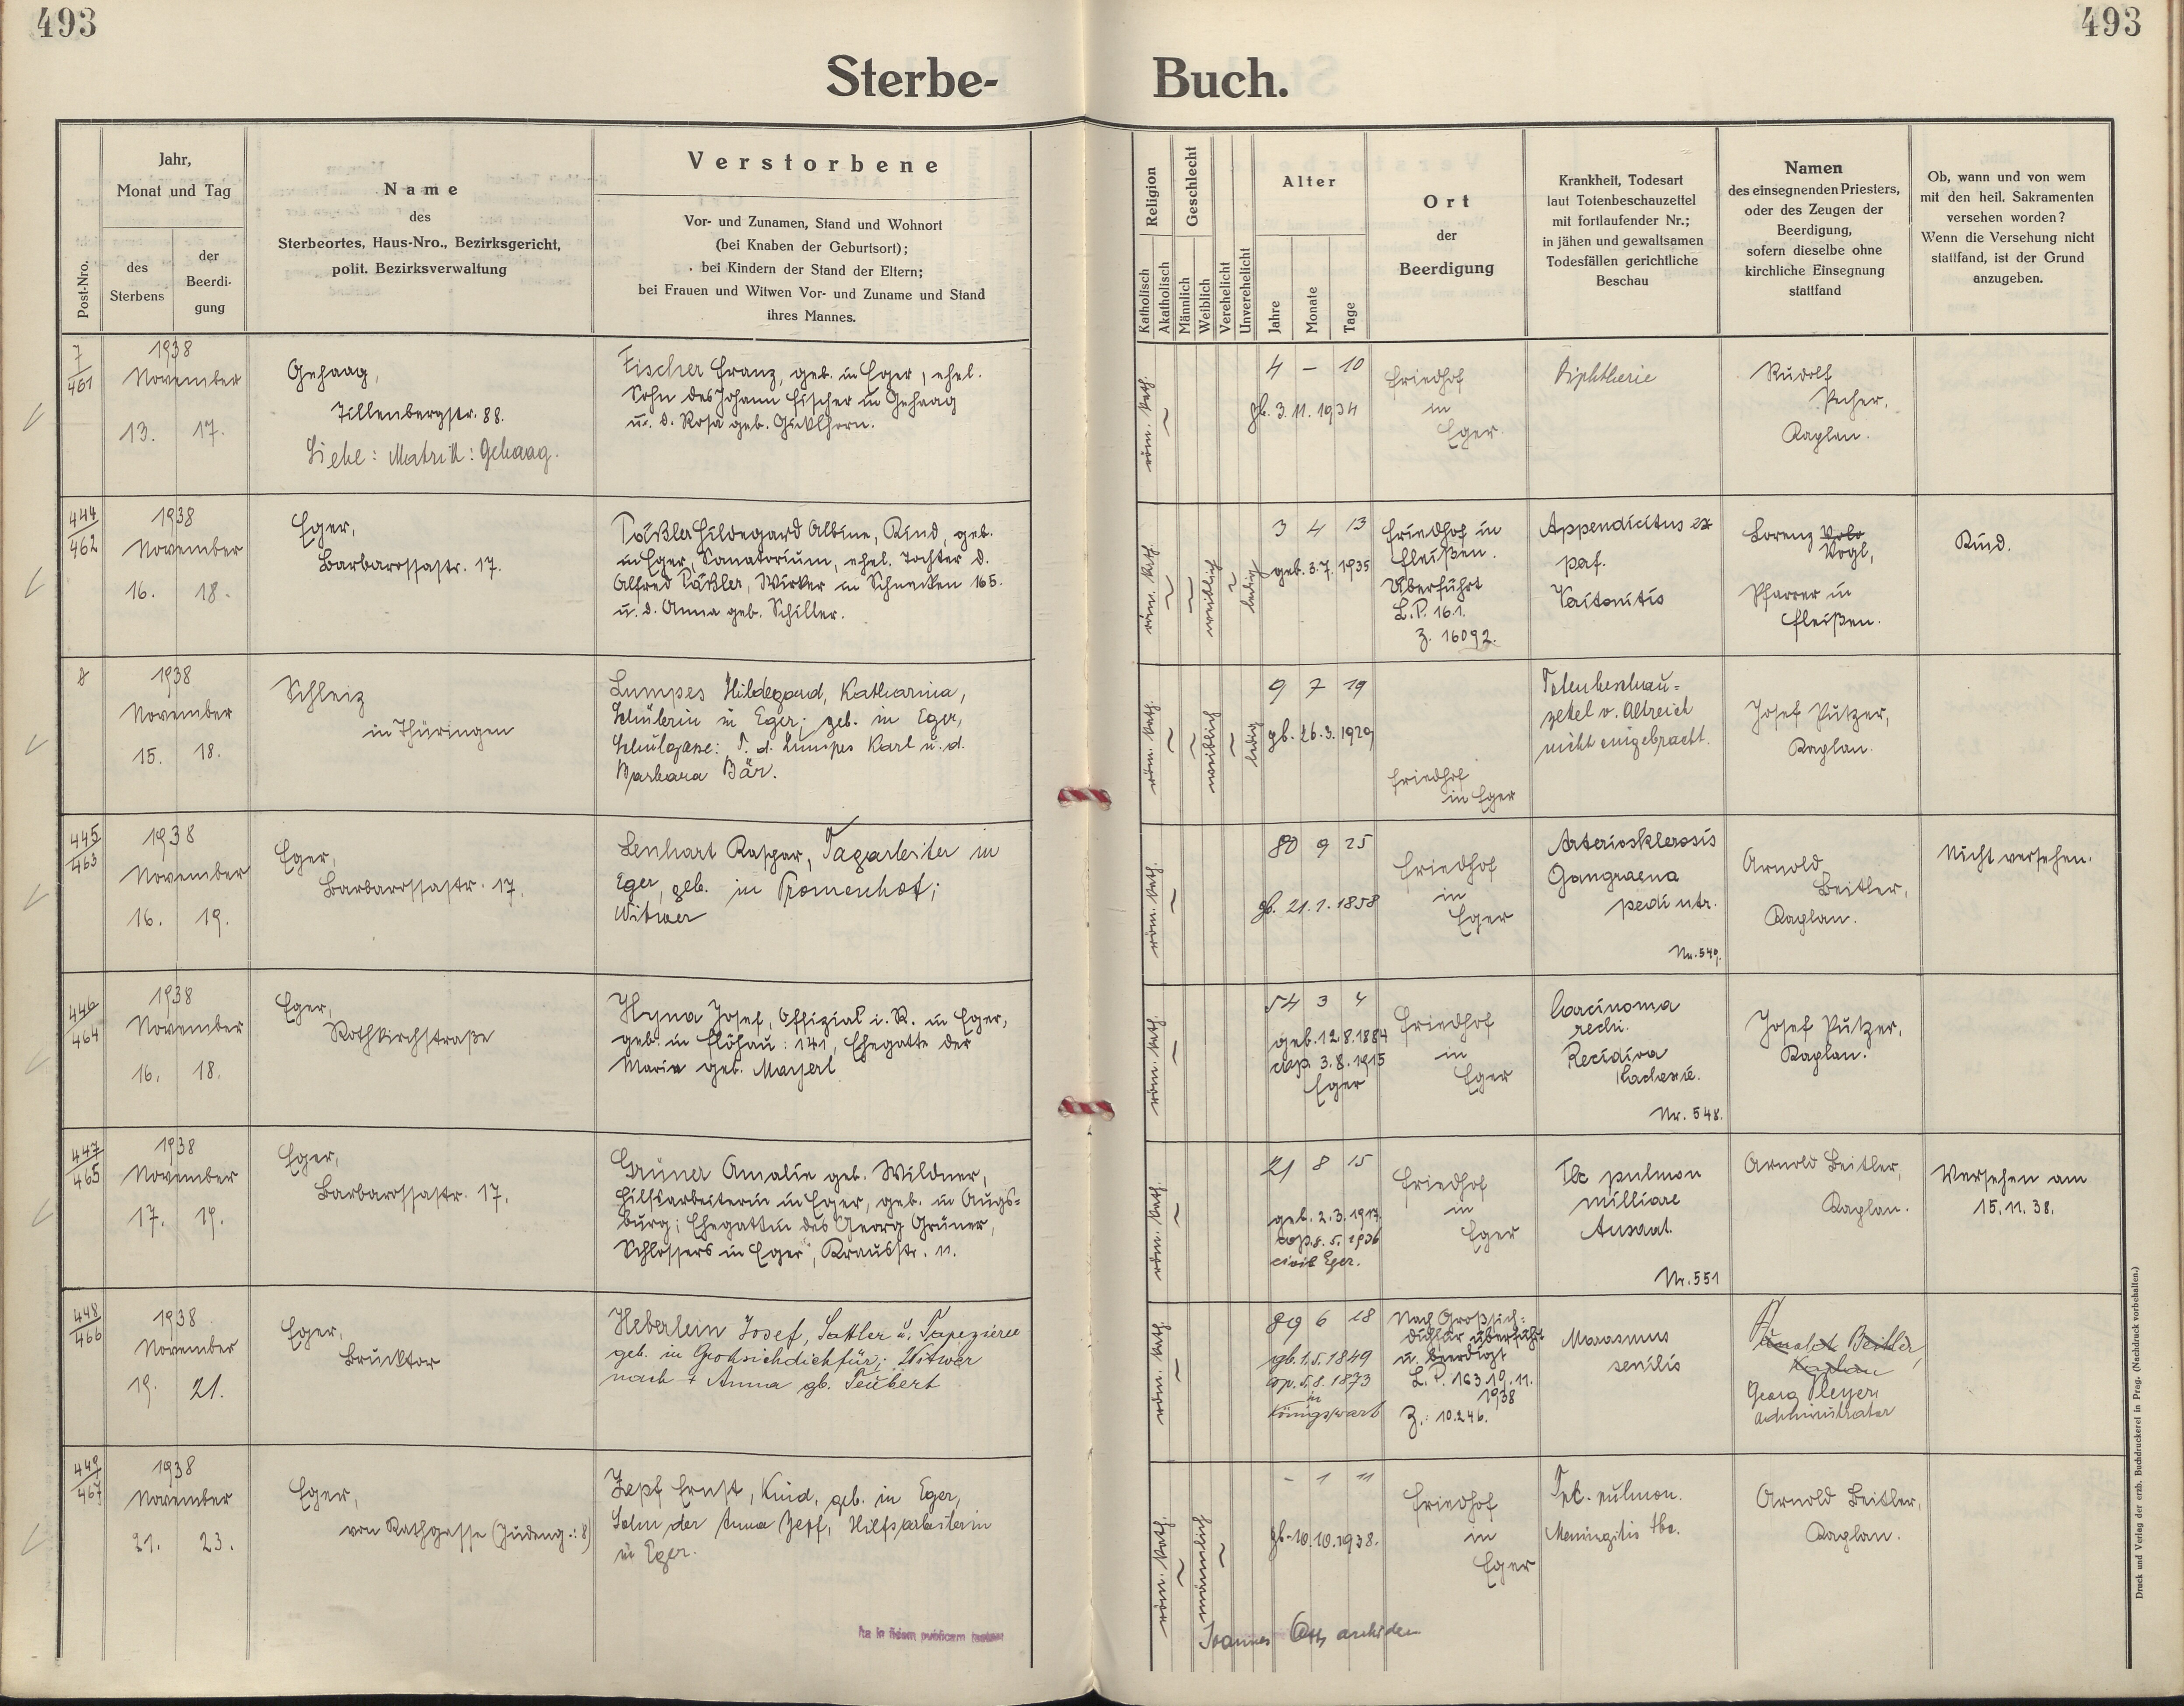 493
493
Sterbe-
Buch.
Post-Nro.
Jahr,
Monat und Tag
des
Sterbens
der
Beerdi-
gung
Name
des
Sterbeortes, Haus-Nro., Bezirksgericht,
polit. Bezirksverwaltung
Verstorbene
Vor- und Zunamen, Stand und Wohnort
(bei Knaben der Geburtsort);
bei Kindern der Stand der Eltern;
bei Frauen und Witwen Vor- und Zuname und Stand
ihres Mannes.
Religion
Katholisch
Akatholisch
Geschlecht
Männlich
Weiblich
Verehelicht
Unverehelicht
Alter
Jahre
Monate
Tage
Ort
der
Beerdigung
Krankheit, Todesart
laut Totenbeschauzettel
mit fortlaufender Nr.;
in jähen und gewaltsamen
Todesfällen gerichtliche
Beschau
Namen
des einsegnenden Priesters,
oder des Zeugen der
Beerdigung,
sofern dieselbe ohne
kirchliche Einsegnung
stattfand
Ob, wann und von wem
mit den heil. Sakramenten
versehen worden?
Wenn die Versehung nicht
stattfand, ist der Grund
anzugeben.
7
461
1938
November
13. 17.
Gehaag,
Tillenbergstr. 88.
Siehe: Matrik: Gehaag.
Fischer Franz, geb. in Eger, ehel.
Sohn des Johann Fischer in Gehaag
u. d. Rosa geb. Gücklhorn.
röm. kath.
4 – 10
gb. 3. 11. 1934
Friedhof
in
Eger
Diphtherie
Rudolf
Pecher,
Kaplan.
444
462
1938
November
16. 18.
Eger,
Barbarossastr. 17.
Päßler Hildegard Albine, Kind, geb.
in Eger, Sanatorium, ehel. Tochter d.
Alfred Päßler, Wirker in Schnecken 165.
u. d. Anna geb. Schiller.
röm. kath.
weiblich
ledig
3 4 13
geb. 3. 7. 1935
Friedhof in
Fleißen.
Überführt
L.P. 161.
Z. 16092.
Appendicitus ex
perf.
Lorenz
Vogl,
Pfarrer in
Fleißen.
Kind.
8
1938
November
15. 18.
Schleiz
in Thüringen
Lumpes Hildegard, Katharina,
Schülerin in Eger; geb. in Eger,
Schulgasse: T. d. Lumpes Karl u. d.
Barbara Bär.
röm. kath.
weiblich
ledig
9 7 19
gb. 26. 3. 1929
Friedhof
in Eger
Totenbeschau-
zettel v. Altreich
nicht eingebracht.
Josef Putzer,
Kaplan.
445
463
1938
November
16. 19.
Eger,
Barbarossastr. 17.
Lenhart Kaspar, Tagarbeiter in
Eger, geb. in Promenhof;
Witwer
röm. kath.
80 9 25
gb. 21. 1. 1858
Friedhof
in
Eger
Arteriosklerosis
Gangraena
pedi utr.
Nr. 540.
Arnold
Beitler,
Kaplan.
Nicht versehen.
446
464
1938
November
16. 18.
Eger,
Rothkirchstraße
Hyna Josef, Offizial i. R. in Eger,
geb. in Flöhau: 141, Ehegatte der
Maria geb. Mayerl
röm. kath.
54 3 4
geb. 12. 8. 1884
cop. 3. 8. 1915
Eger
Friedhof
in
Eger
Carcinoma
recti.
Recidiva
Nr. 548.
Josef Putzer,
Kaplan.
447
465
1938
November
17. 19.
Eger,
Barbarossastr. 17.
Grüner Amalie geb. Wildner,
Hilfsarbeiterin in Eger, geb. in Augs-
burg; Ehegattin des Georg Grüner,
Schlossers in Eger, Krausstr. 11.
röm. kath.
21 8 15
geb. 2. 3. 1917.
cop. 8. 5. 1936
civil Eger.
Friedhof
in
Eger
Tbc pulmon
milliare
Nr. 551
Arnold Beitler,
Kaplan.
Versehen am
15. 11. 38.
448
466
1938
November
19. 21.
Eger,
Brucktor
Heberlein Josef, Sattler u. Tapezierer
geb. in Großsichdichfür; Witwer
nach + Anna gb. Teubert
röm. kath.
89 6 18
gb. 1. 5. 1849
cop. 5. 8. 1873
in
Königswart
Nach Großsich-
dichfür überführt
u. beerdigt
L. P. 163 19. 11.
1938
Z.: 10.246.
Marasmus
senilis
Arnold Beitler,
Kaplan
Georg Pleyer,
administrator
449
467
1938
November
21. 23.
Eger,
von Rathgasse (Judeng.: 8)
Zepf Ernst, Kind, geb. in Eger,
Sohn der Anna Zepf, Hilfsarbeiterin
in Eger.
röm. kath.
männlich
– 1 11
gb. 10. 10. 1938.
Friedhof
in
Eger
Tbc. pulmon.
Meningitis tbc.
Arnold Beitler,
Kaplan.
Ita in fidem publicam testor
Joannes Ott archidec
Druck und Verlag der erzb. Buchdruckerei in Prag. (Nachdruck vorbehalten.)